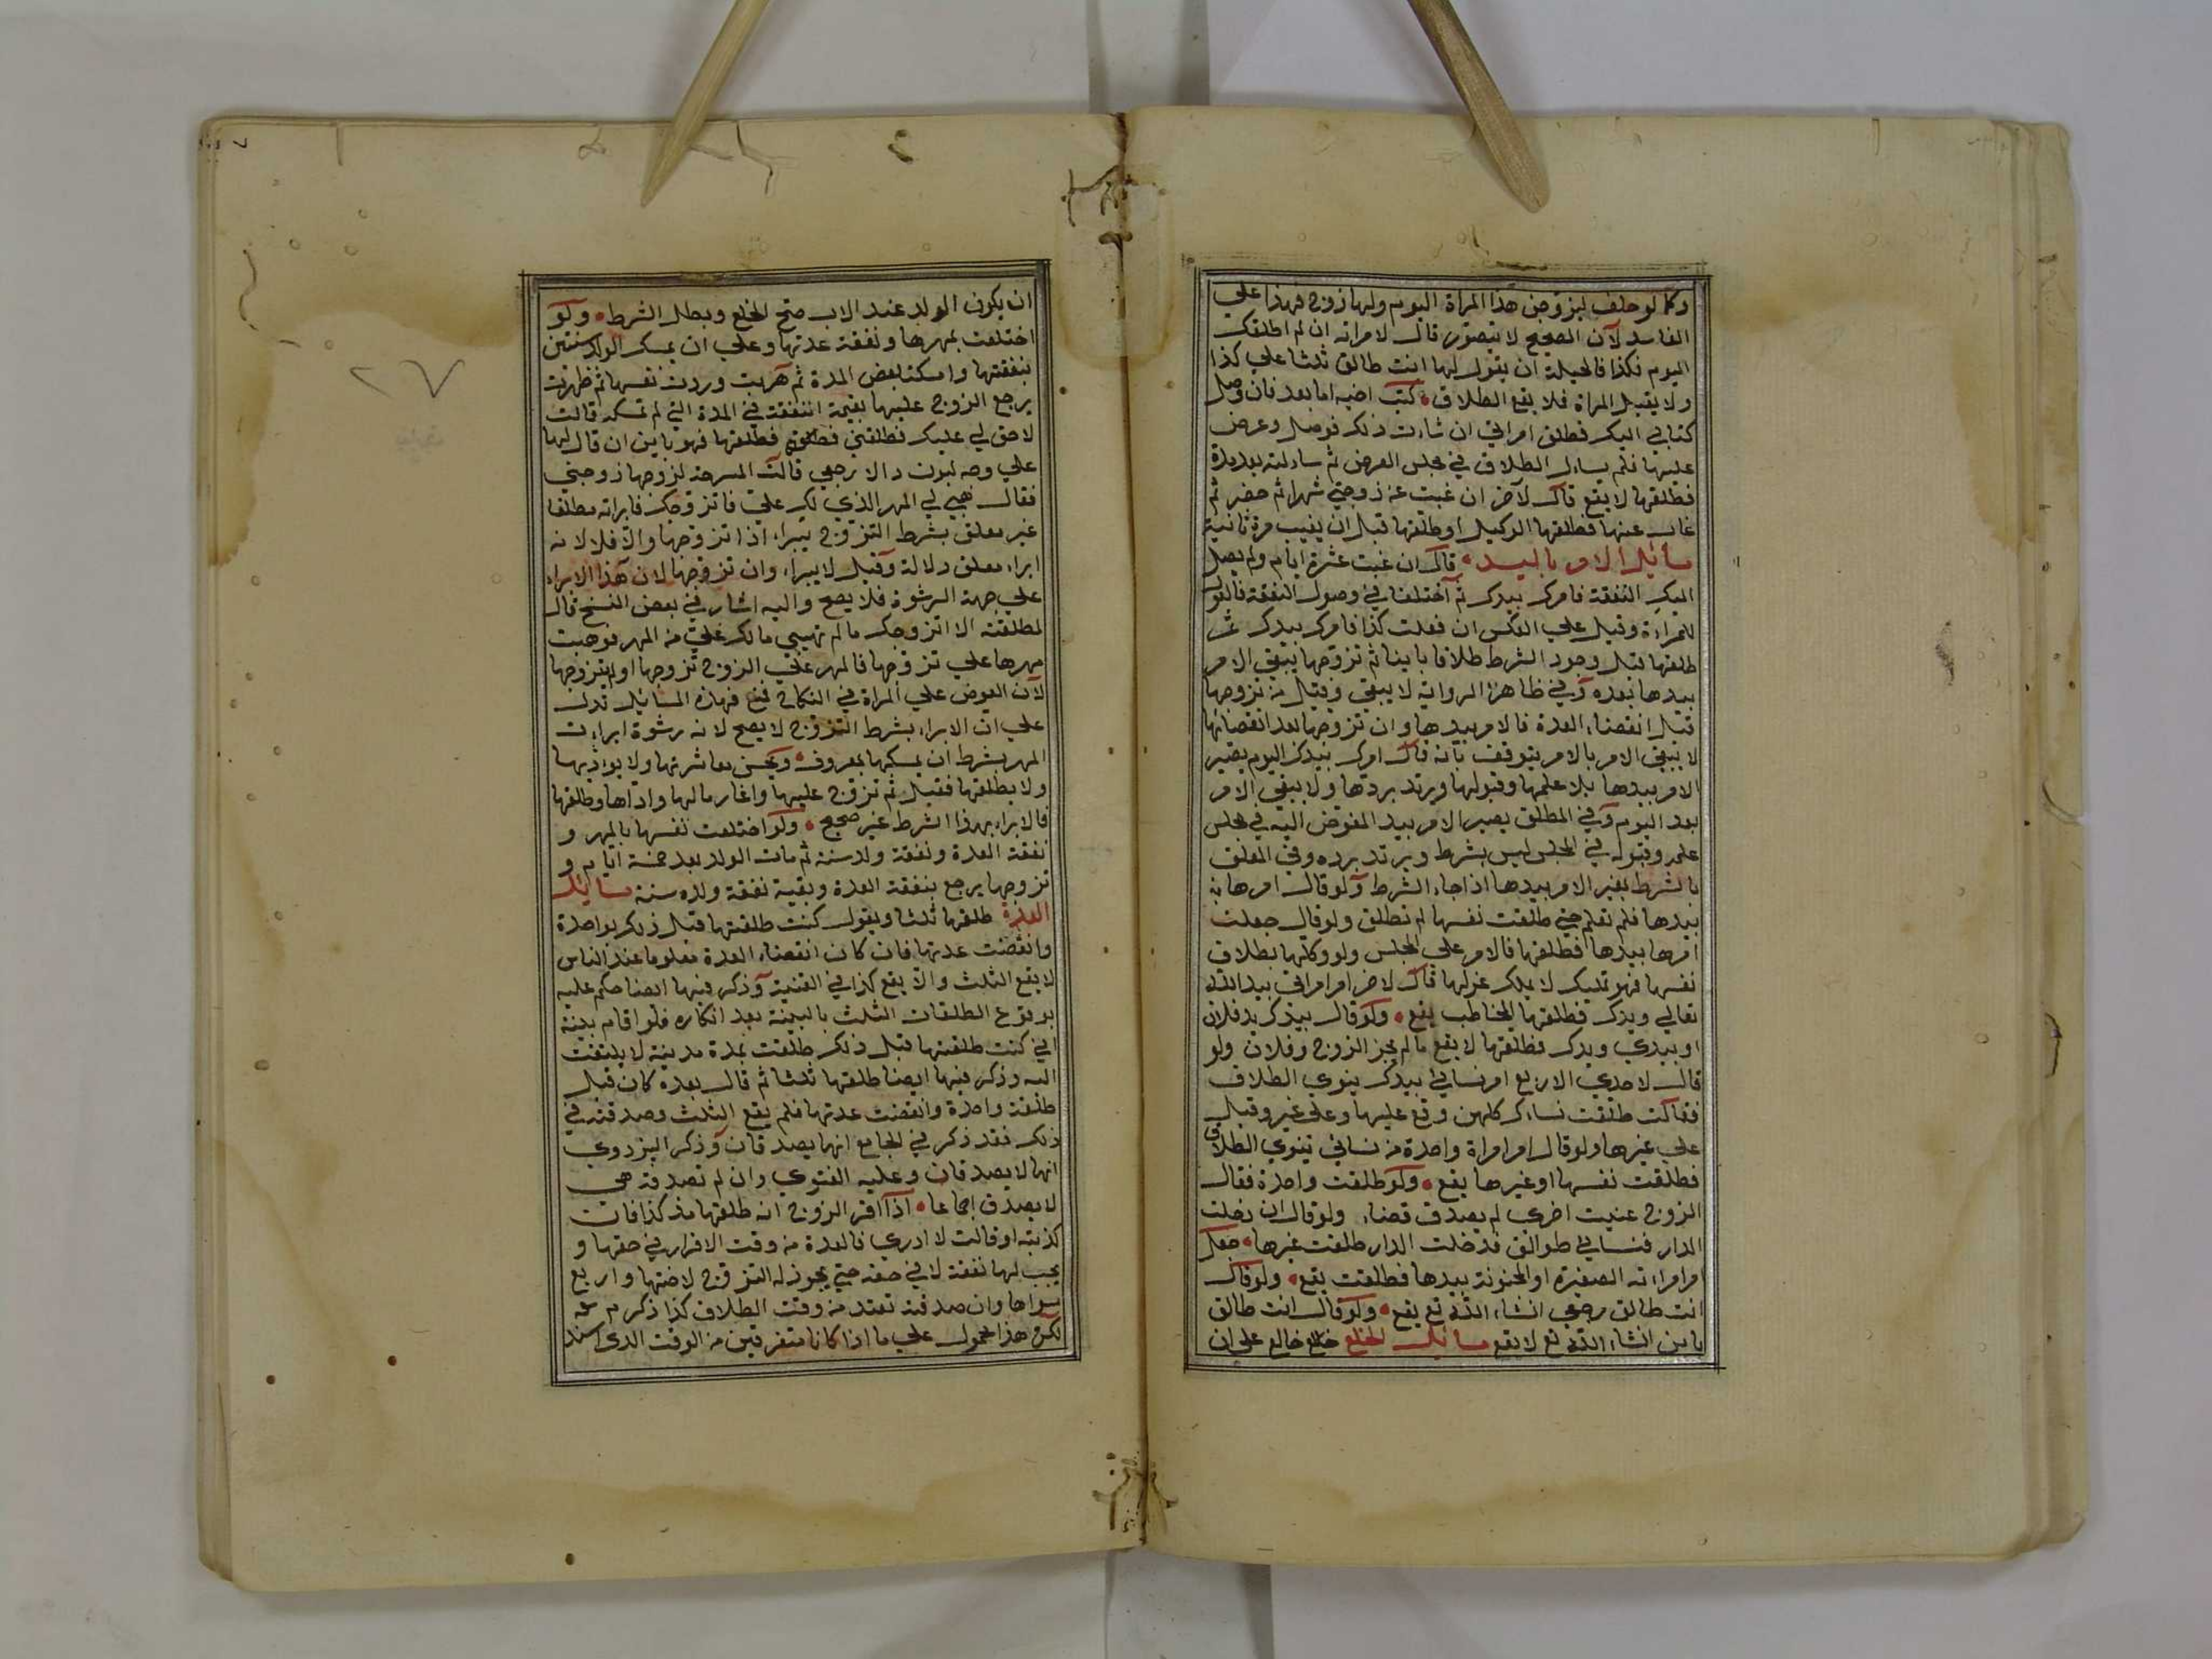 وكما لو حلف ليزوجن هذا المراة اليوم ولها زوج فهذا علي
الفاسد لآن الصحيح لا يتصور قال لامراته ان لم اطلقك
اليوم فكذا فالحيلة ان يقول لها انت طالق ثلثا علي كذا
ولا يقبل المراة فلا يقع الطلاق كتب اما بعد فان وصل
كتابي اليك فطلق امراتي ان شاءت ذلك فوصل وعرض
عليها فلم يساءل الطلاق في مجلس العرض ثم ساءلته بعد مدة
فطلقها لا يقع قال لآخر ان غبت عن زوجتي شهرا ثم حضر ثم
غاب عنها فطلقها الوكيل او طلقها قبل ان يغيب مرة ثانية
مسائل الامر باليد قال ان غبت عشرة ايام ولم يصل
اليك النفقة فامرك بيدك ثم اختلفا في وصول النفقة فالقول
للمراءة وقيل علي العكس ان فعلت كذا فامرك بيدك ثم
طلقها قبل وجود الشرط طلاقا باينا ثم تزوجها يبقي الامر
بيدها بعده وفي ظاهر الرواية لا يبقي وقيل من تزوجها
قبل انقضاء العدة فالامر بيدها وان تزوجها بعد انقضائها
لا يبقي الامر بالامر يتوقف بانه قال امرك بيدك اليوم يصير
الامر بيدها بلا علمها وقبولها ويرتد بردها ولا يبقي الامر
بعد اليوم وفي المطلق يصير الامر بيد المفوض اليه في مجلس
علمه وقبوله في المجلس ليس بشرط ويرتد برده وفي المعلق
بالشرط يغير الامر بيدها اذا جاء الشرط ولو قال امرها
بيدها فلم تعلم حتي طلقت نفسها لم تطلق ولو قال جعلت
امرها بيدها فطلقها فالامر علي المجلس ولو وكلها بطلاق
نفسها فهو تمليك لا يملك عزلها قال لاخر امر امراتي بيد الله
تعالي ويدك فطلقها المخاطب يقع ولو قال بيدك يد فلان
او بيدي ويدك فطلقها لا يقع ما لم يجز الزوج وفلان ولو
قال لاحدي الاربع امر نسايي بيدك ينوي الطلاق
فقالت طلقت نساءك كلهن وقع عليها وعلي غير وقيل
علي غيرها ولو قال امر امراة واحدة من نسائي ينوي الطلاق
فطلقت نفسها او غيرها يقع ولو طلقت واحدة فقال
الزوج عنيت اخري لم يصدق قضاء ولو قال ان دخلت
الدار فنسايي طوالق فدخلت الدار طلقت غيرها جعل
امر امراته الصغيرة او المجنونة بيدها فطلقت يقع ولو قال
انت طالق رجعي انشاء الله تع يقع ولو قال انت طالق
باين انشاء الله تع لا يقع مسائل الخلع خالع علي ان
ان يكون الولد عند الاب صح الخلع وبطل الشرط ولو
اختلعت بمهرها ونفقة عدتها وعلي ان يمسك الولد سنتين
بنفقتها وامسكت بعض المدة ثم هربت وردت نفسها ثم ظهرت
يرجع الزوج عليها بقيمة النفقة في المدة التي لم تمسكه قالت
لا حق لي عليك فطلقني فطلقها فهو باين ان قال لها
علي وجه لا رجعي قالت المسرحة لزوجها زوجني
فقال هبي لي المهر الذي لك علي فاتزوجك فابراته مطلقا
غير معلق بشرط التزوج يبراء اذا تزوجها والا فلا لانه
ابراء معلق دلالة وقيل لا يبراء وان تزوجها لان هذا الابراء
علي جهة الرشوة فلا يصح واليه اشار في بعض النسخ قال
لمطلقته الا اتزوجك ما لم تهبيي ما لك علي من المهر فوهبت
مهرها علي تزوجها فالمهر علي الزوج تزوجها او لم يتزوجها
لان العوض علي المراة في النكاح فهذه المسائل تدل
علي ان الابراء بشرط التزوج لا يصح لانه رشوة ابراءت
المهر بشرط ان يمسكها بمعروف ويحسن معاشرتها ولا يواذيها
ولا يطلقها فقبل ثم تزوج عليها واغار مالها واذاها وطلقها
فالابراء بهذا الشرط غير صحيح ولو اختلعت نفسها بالمهر و
نفقة العدة ونفقة ولد سنة ثم مات الولد بعد خمسة ايام و
تزوجها يرجع بنفقة العدة وبقية نفقة ولده سنة مسائل
العدة طلقها ثلثا ويقول كنت طلقتها قبل ذلك بواحدة
وانقضت عدتها فان كان انقضاء العدة معلوما عند الناس
لا يقع الثلث والا يقع كذا في القنية وذكر فيها ايضا حكم عليه
بوقوع الطلقات الثلث بالبينة بعد انكاره فلو اقام بينة
اني كنت طلقتها قبل ذلك طلقت بمدة مدينة لا يلتفت
اليه وذكر فيها ايضا طلقها ثلثا ثم قال بعده كان قبل
طلقة واحدة وانقضت عدتها فلم يقع الثلث وصدقته في
ذلك فقد ذكر في الجامع انهما يصدقان وذكر البزدوي
انها لا يصدقان وعليه الفتوي وان لم تصدقه هي
لا يصدق اجماعا اذا اقر الزوج انه طلقها منذ كذا فان
كذبته او قالت لا ادري فالعدة من وقت الاقرار في حقها و
يجب لها نفقة لا في حقه حتي يجوز له التزوج لاختها واربع
سواها وان صدقته تعتد من وقت الطلاق كذا ذكر م
لكن هذا محمول علي ما اذا كانا متفرقين من الوقت الذي اسند
٢٧